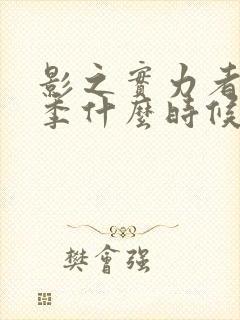 影之實力者
季什麼時候
樊會強